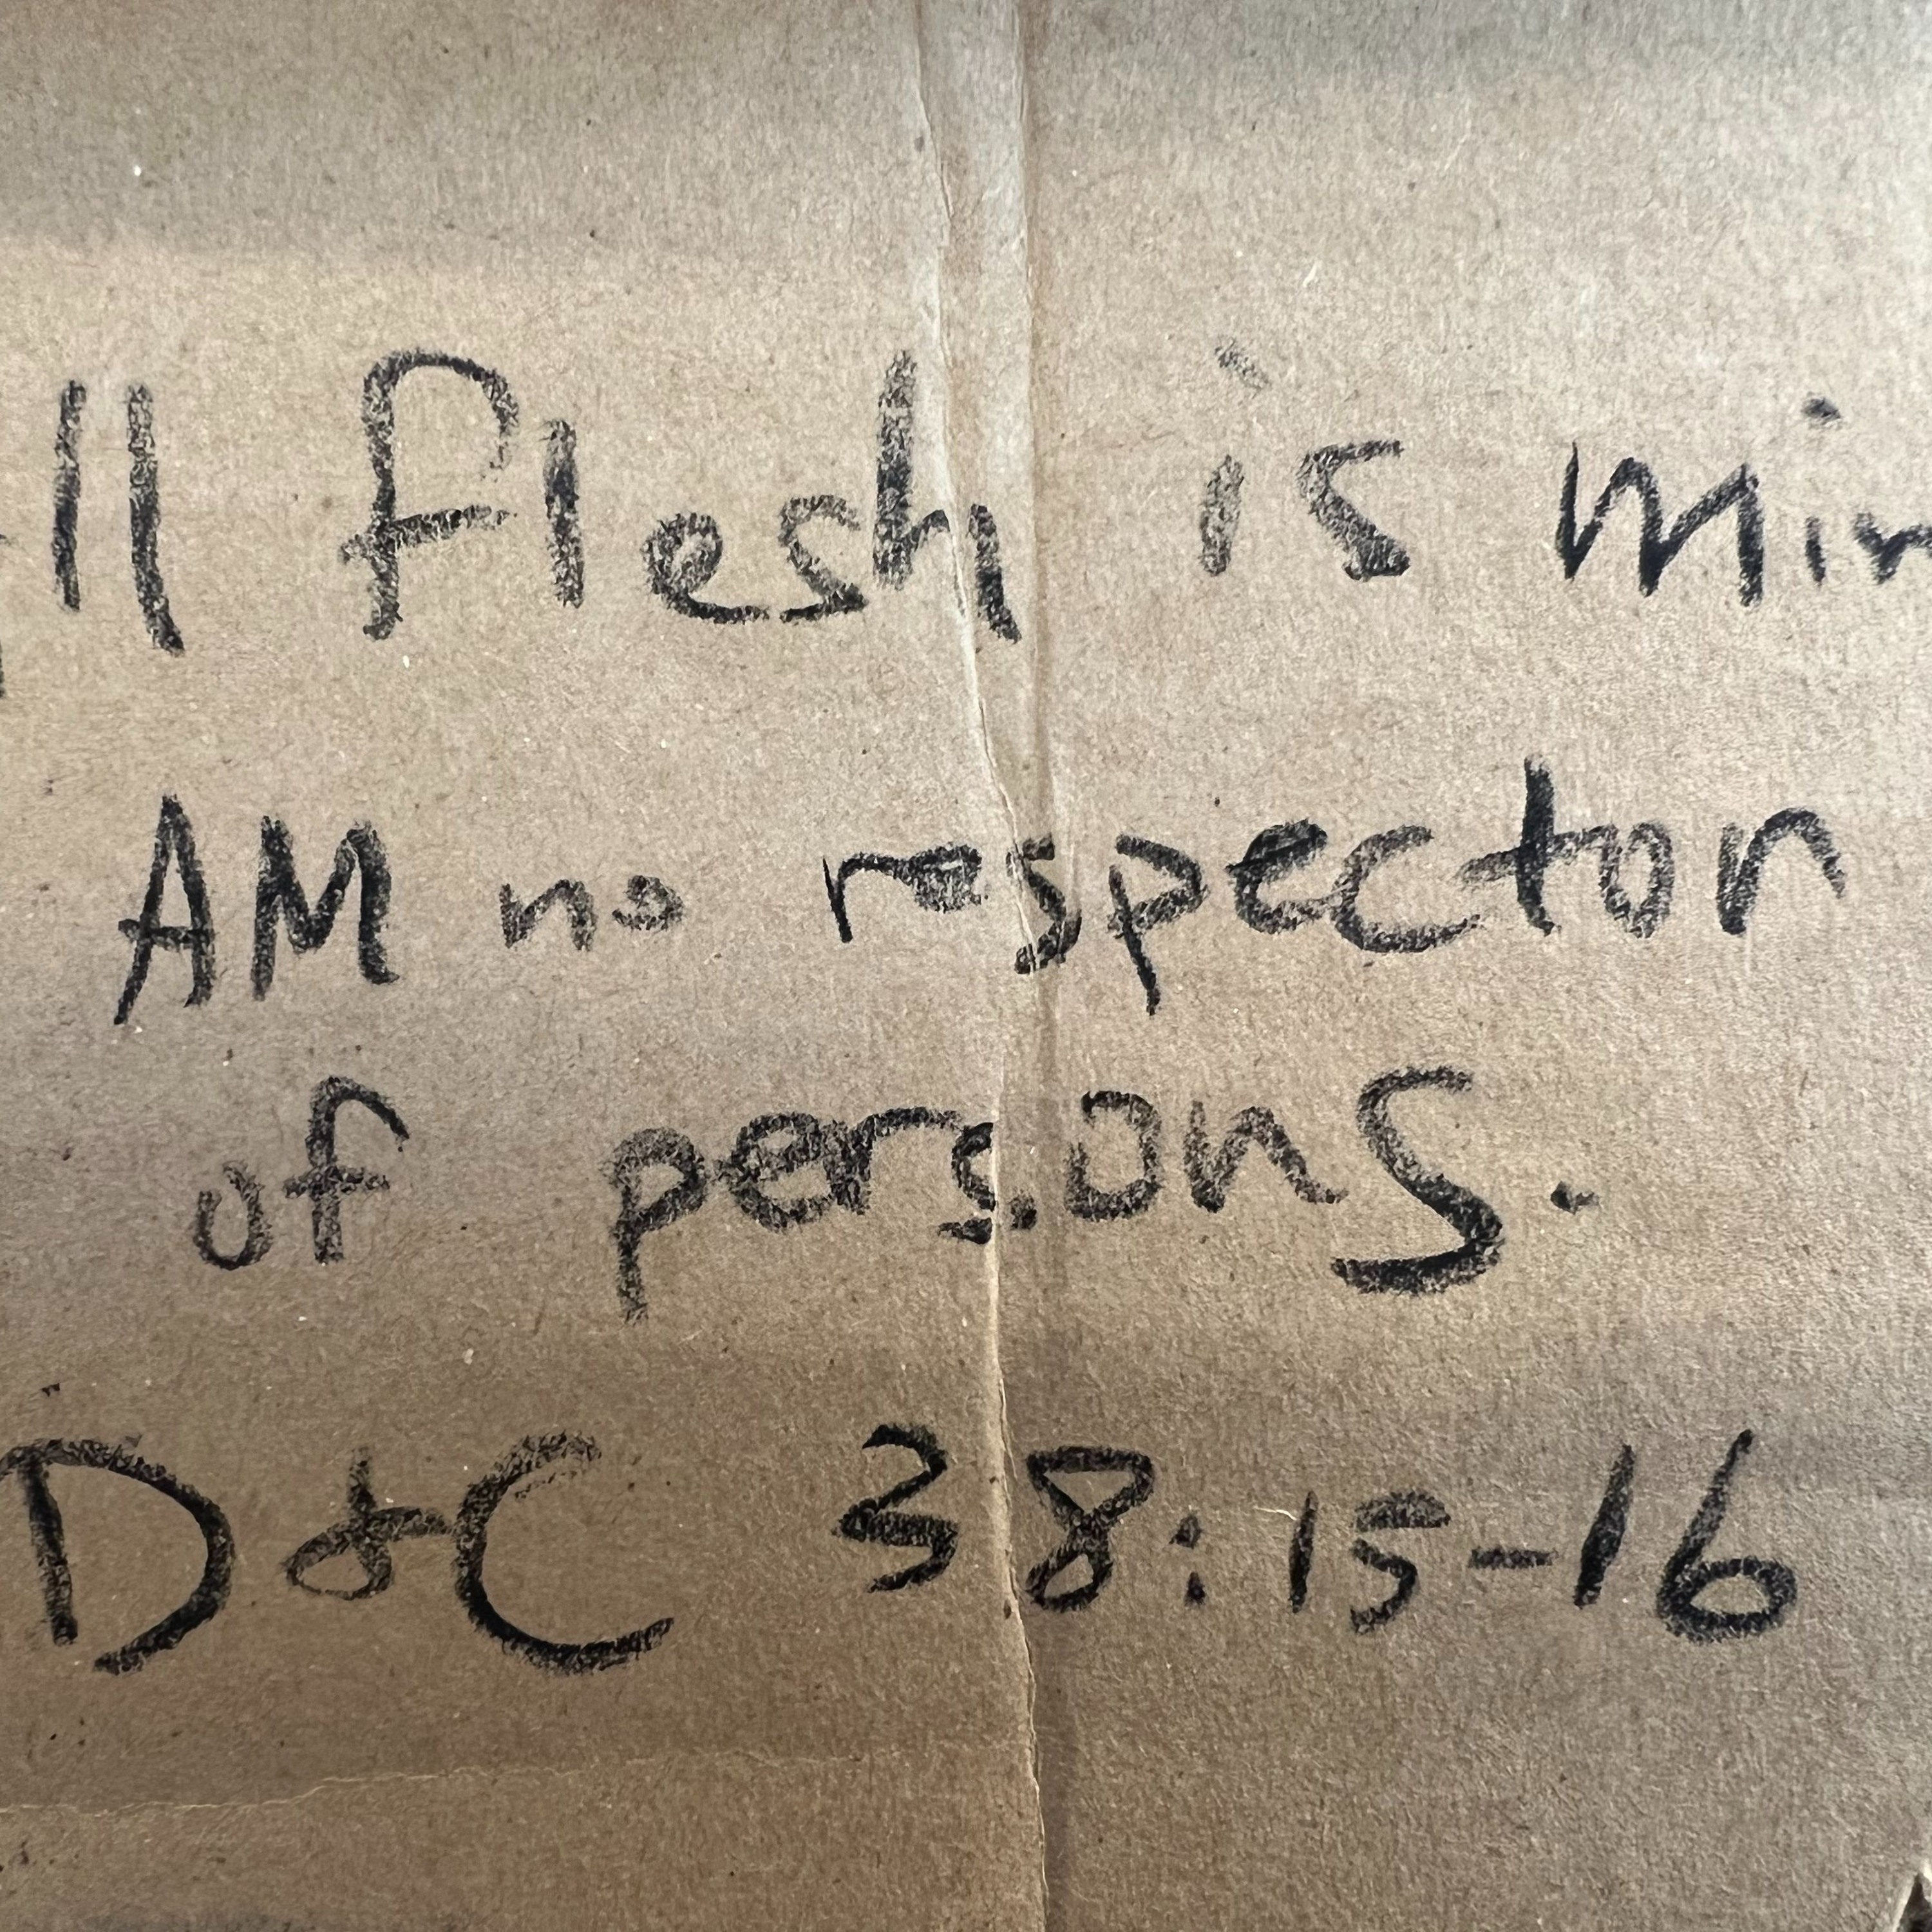 ll flesh is min
AM no respector
of persons.
D&C 38:15-16